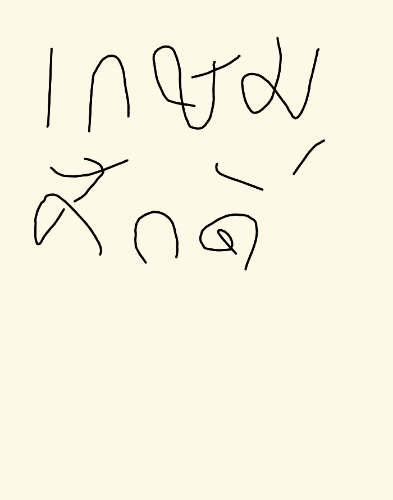 เกษม
ศักดิ์